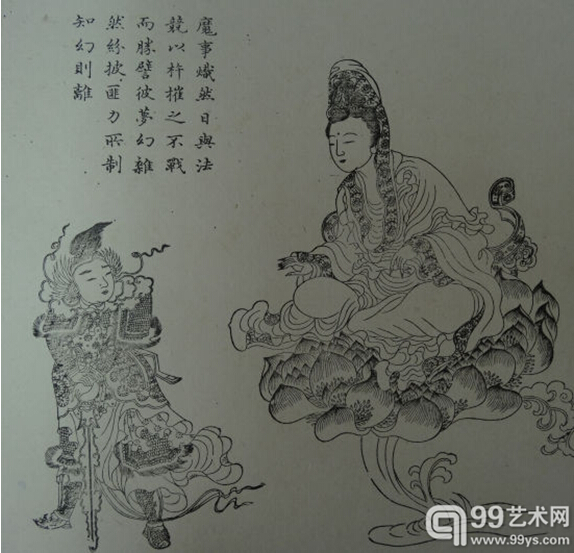 魔事熾然日與法
競以杵摧之不戰
而勝譬彼夢幻雖
然紛披匪力所制
知幻則離
99艺术网
www.99ys.com